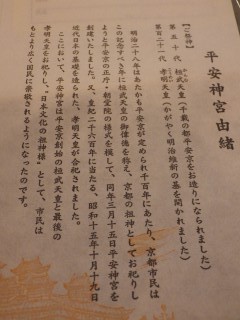 平安神宮由緒
【ご祭神】
第五十代 桓武天皇(千載の都平安京をお造りになられました)
第百二十一代 孝明天皇(かがやく明治維新の基を開かれました)
明治二十八年はあたかも平安京が定められて千年にあたり、京都市民は
この記念すべき年に桓武天皇の御偉徳を称え、京都の祖神としてお祀りし
ようと平安京の正庁、朝堂院の様式を模して、同年三月十五日平安神宮を
創建いたしました。又、皇紀二千六百年に当たる、昭和十五年十月十九日
近代日本の基礎を造られた、孝明天皇が合祀されました。
ここにおいて、平安神宮は平安京創始の桓武天皇と最後の
天皇をお祀りし、「日本文化の祖神様」として、市民は
もとより広く国民に崇敬されるようになったのです。